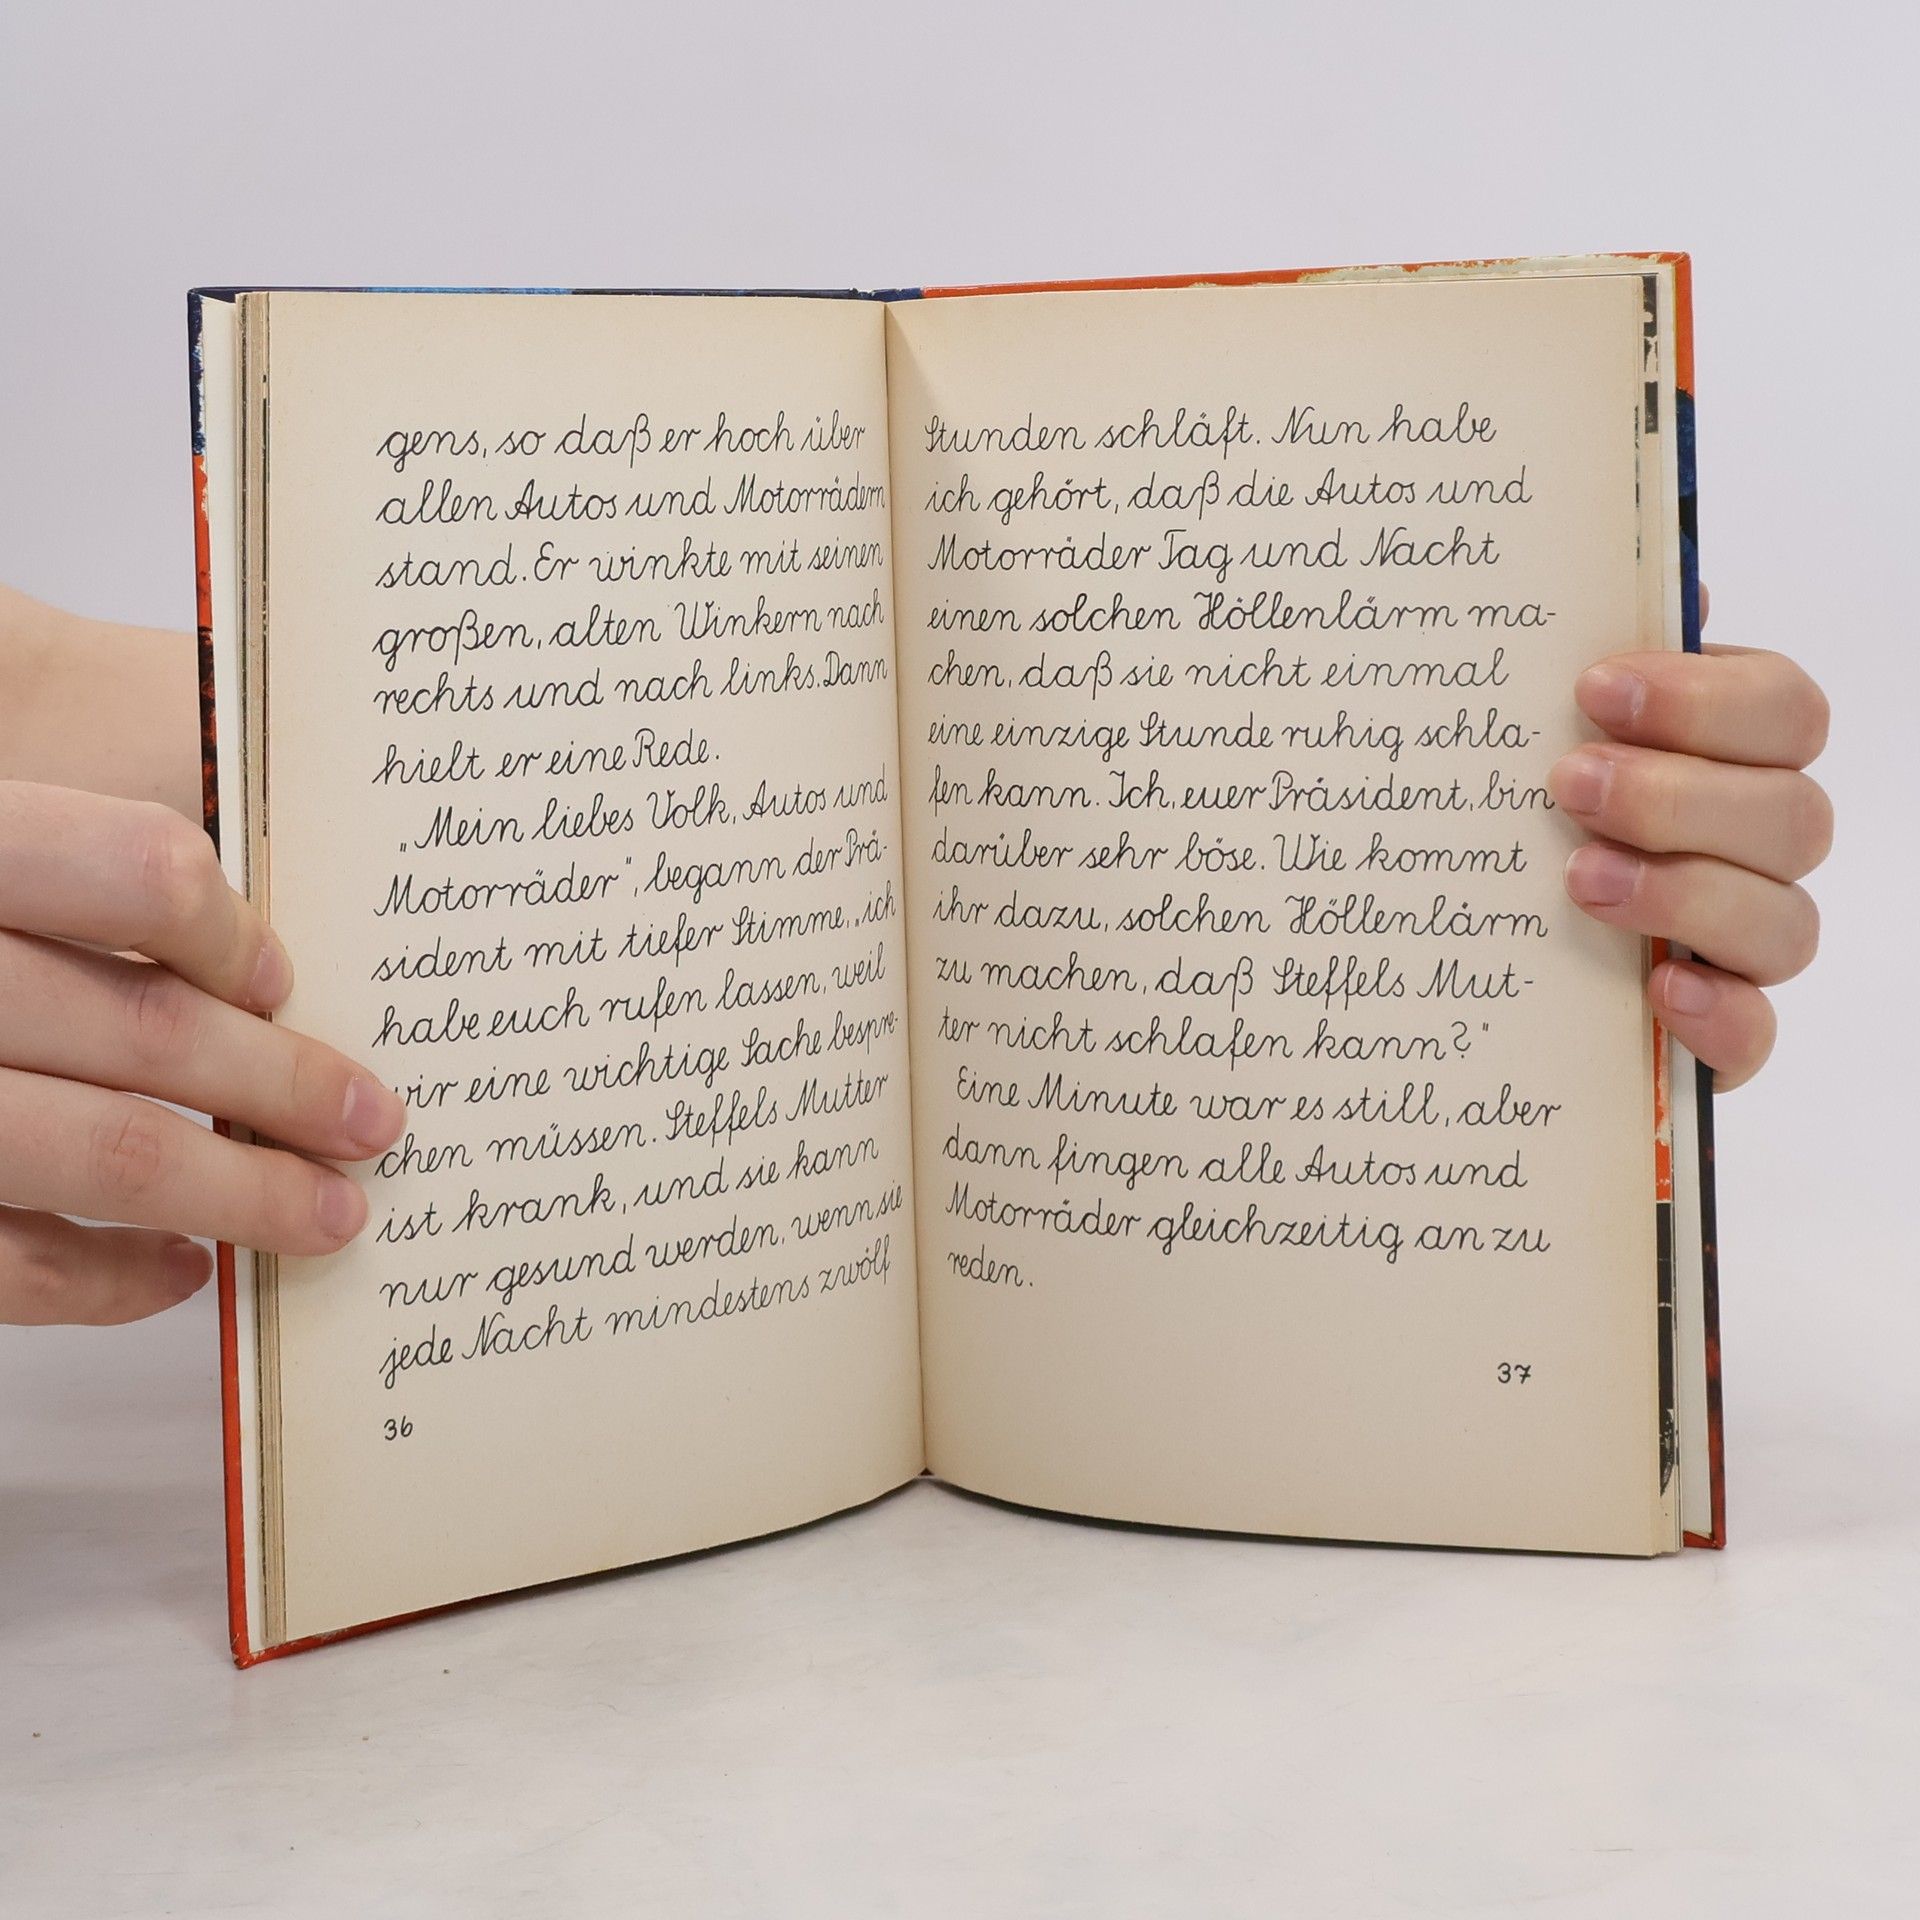 gens, so daß er hoch über
allen Autos und Motorrädern
stand. Er winkte mit seinen
großen, alten Winkern nach
rechts und nach links. Dann
hielt er eine Rede.
„Mein liebes Volk, Autos und
Motorräder", begann der Prä-
sident mit tiefer Stimme, „ich
habe euch rufen lassen, weil
wir eine wichtige Sache bespre-
chen müssen. Steffels Mutter
ist krank, und sie kann
nur gesund werden, wenn sie
jede Nacht mindestens zwölf
36
Stunden schläft. Nun habe
ich gehört, daß die Autos und
Motorräder Tag und Nacht
einen solchen Höllenlärm ma-
chen, daß sie nicht einmal
eine einzige Stunde ruhig schla-
fen kann. Ich, euer Präsident, bin
darüber sehr böse. Wie kommt
ihr dazu, solchen Höllenlärm
zu machen, daß Steffels Mut-
ter nicht schlafen kann?"
Eine Minute war es still, aber
dann fingen alle Autos und
Motorräder gleichzeitig an zu
reden.
37